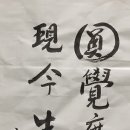 圓覺
現今生